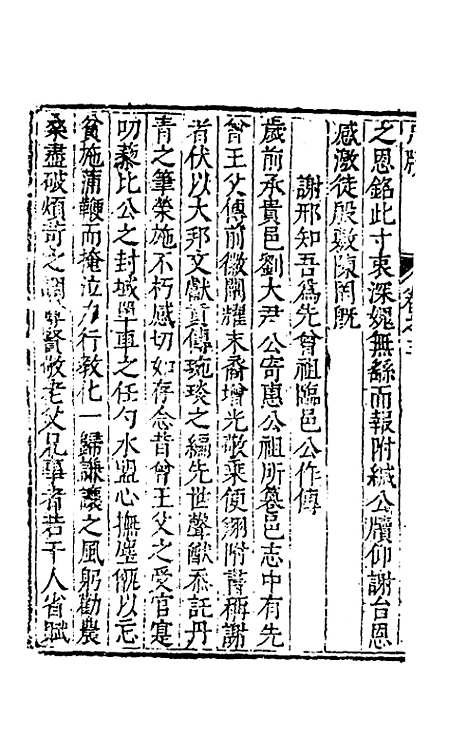 之恩銘此寸衷深媿無繇而報附緘公牘仰謝台恩
感激徒殷敷陳罔既
謝邢知吾爲先曾祖臨邑公作傳
歲前承貴邑劉大尹公寄惠公祖所篹邑志中有先
曾王父傳前徽闡耀末裔增光敬乘便翮附謝稱謝
者伏以大邦文獻傳琬琰之編先世聲猷忝託丹
青之筆榮施不朽感切如存念昔曾王父之受官寔
叨藜比公之封域單車之任勺水盟心撫塵甑以忘
貧施蒲鞭而掩泣力行教化一歸謙讓之風躬勸農
桑盡破煩苛之調 賢敬老父兄事者若干人省賦